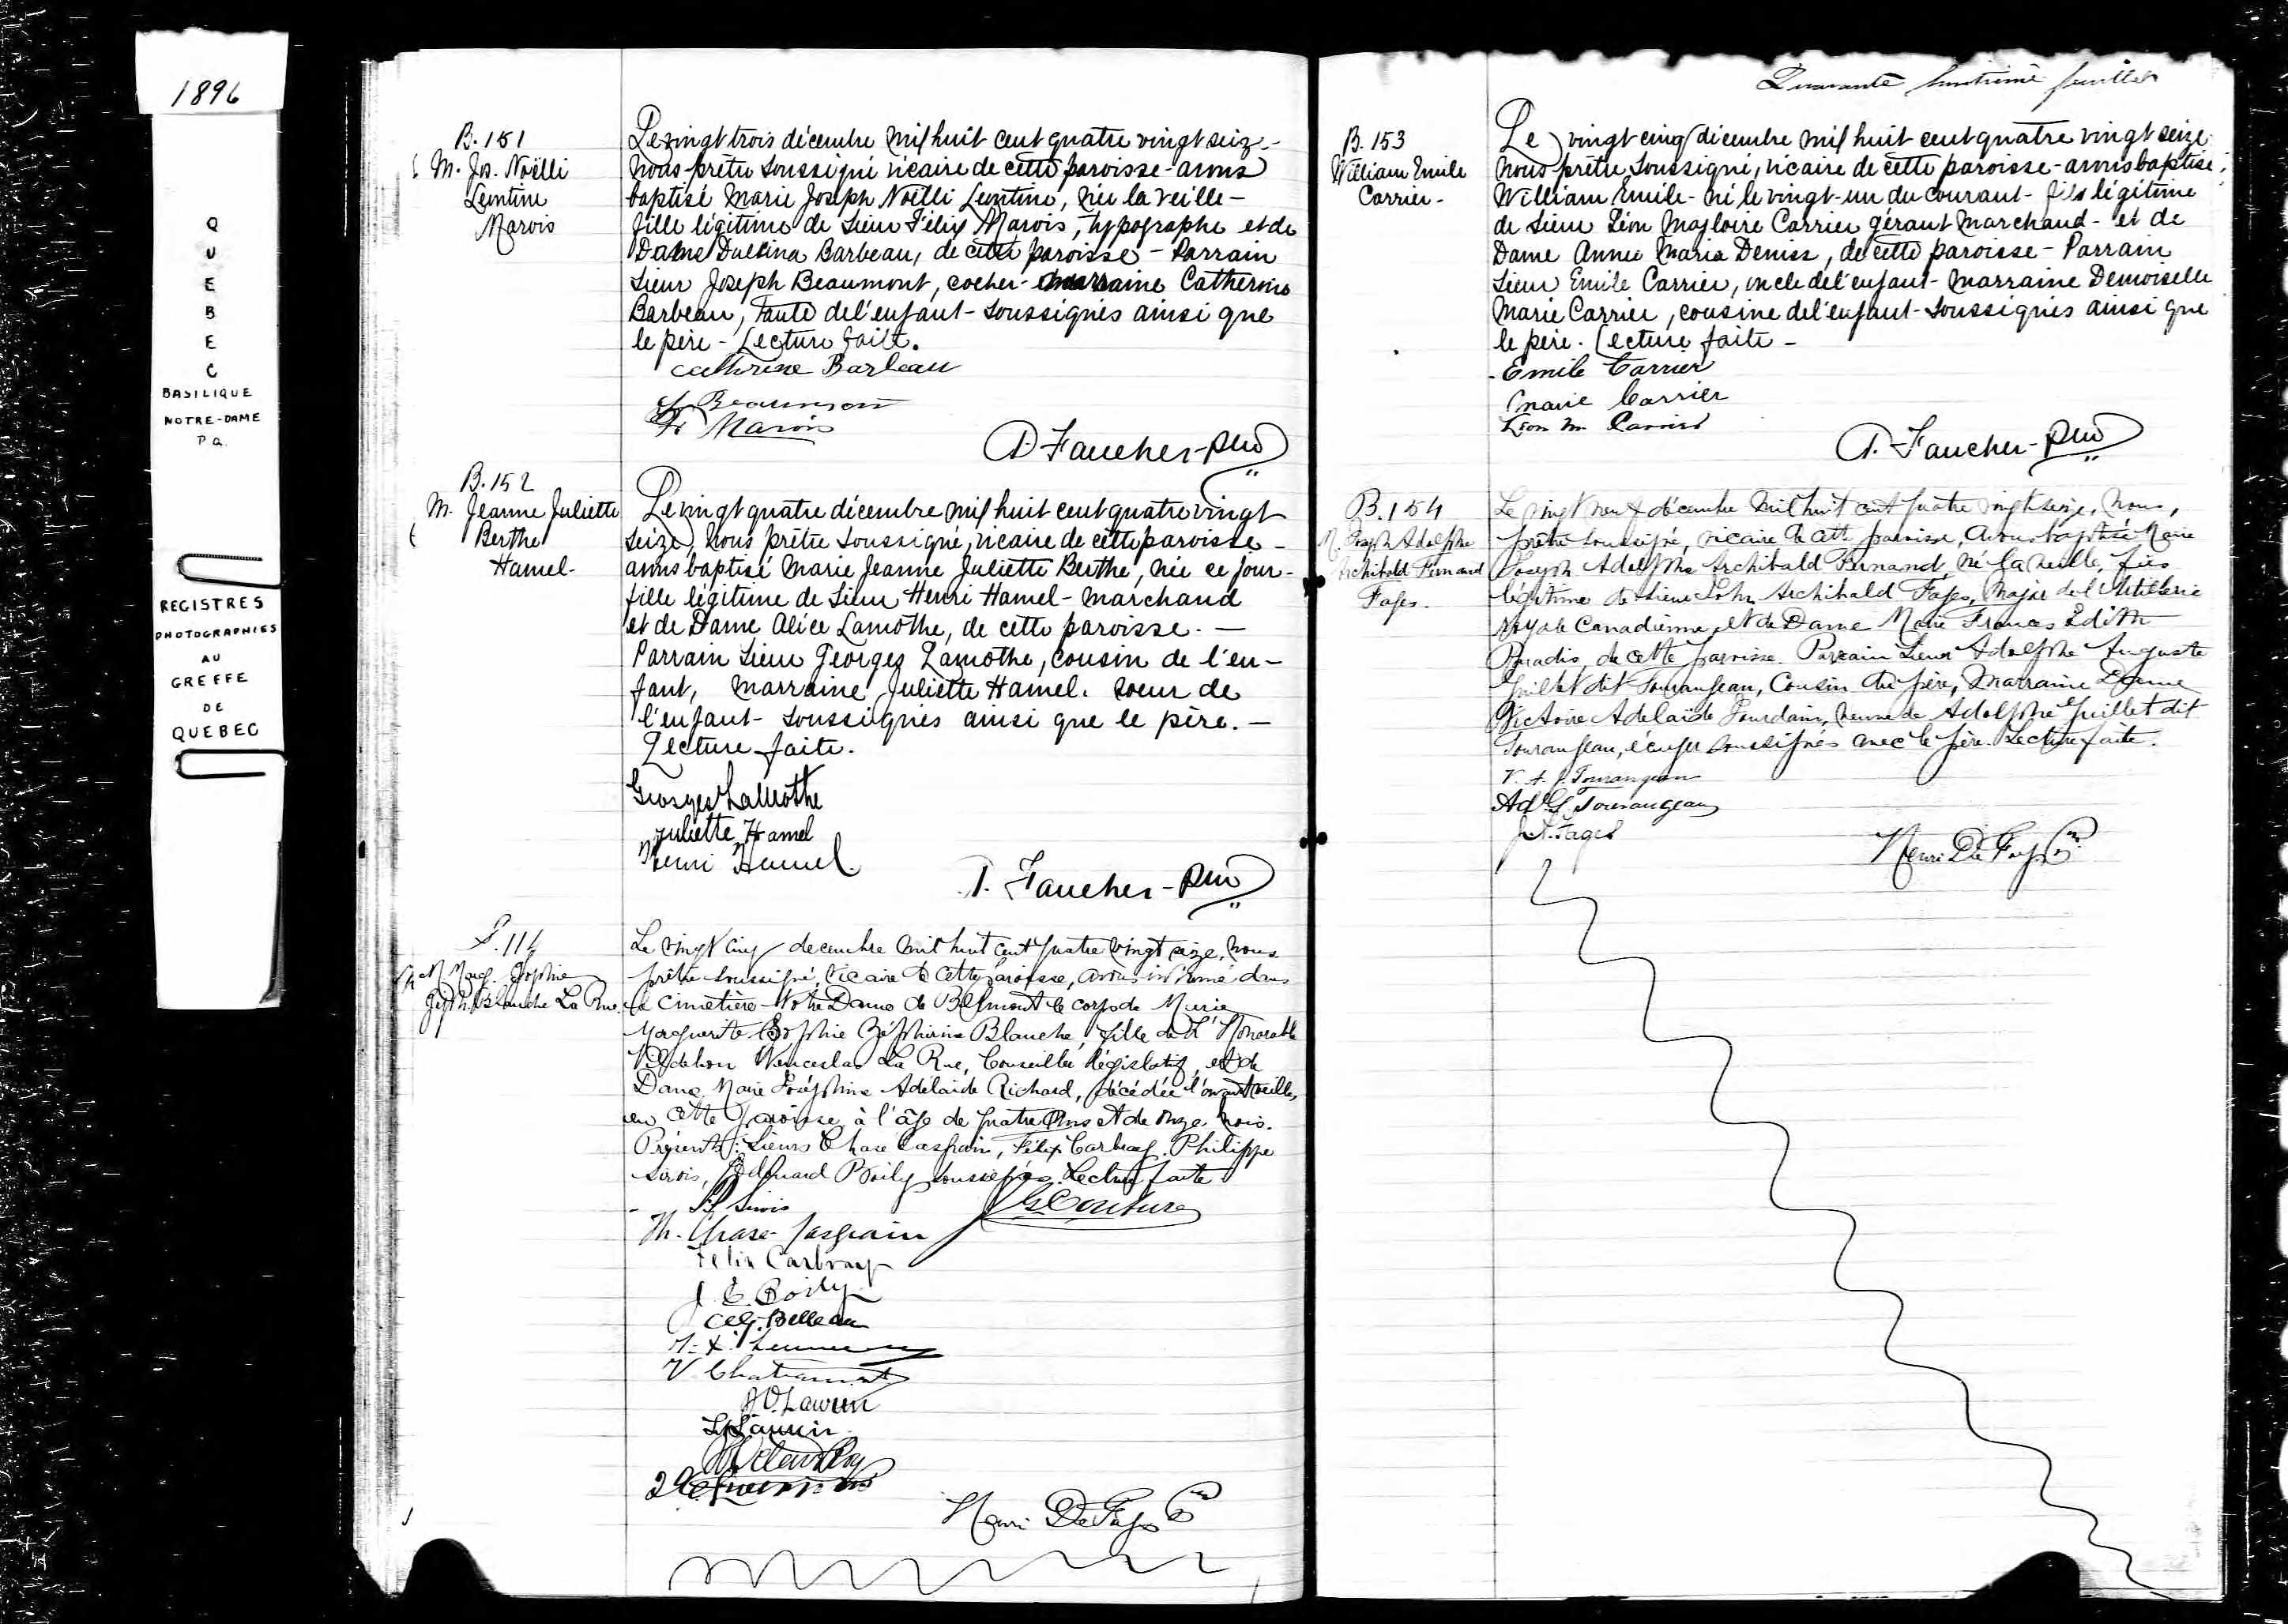 1896
QUEBEC
BASILIQUE
NOTRE-DAME
P.Q.
REGISTRES
PHOTOGRAPHIES
AU
GREFFE
DE
QUEBEC
B. 151
M. Jos. Noëlli
Leontine
Marois
Le vingt trois décembre mil huit cent quatre vingt seiz-
nous prêtre soussigné vicaire de cette paroisse - avons
baptisé Marie Joseph Noëlli Leontine, née la veille -
fille légitime de Sieur Félix Marois, typographe et de
Dame Dulcina Barbeau, de cette paroisse - Parrain
Sieur Joseph Beaumont, cocher - marraine Catherine
Barbeau, tante de l'enfant - soussignés ainsi que
le père - Lecture faite.
Cathrine Barbeau
J. Beaumont
Fx Marois
P. Faucher - ptre
B. 152
M. Jeanne Juliette
Berthe
Hamel -
Le vingt quatre décembre mil huit cent quatre vingt
seize, nous prêtre soussigné, vicaire de cette paroisse -
avons baptisé Marie Jeanne Juliette Berthe, née ce jour -
fille légitime de Sieur Henri Hamel - marchand
et de Dame Alice Lamothe, de cette paroisse. -
Parrain Sieur Georges Lamothe, cousin de l'en-
fant, marraine Juliette Hamel. soeur de
l'enfant - soussignés ainsi que le père. -
Lecture faite.
Georges Lamothe
Juliette Hamel
Henri Hamel.
P. Faucher - ptre
S. 114
M. Marg. Sophie
Zéph. Blanche La Rue
Le vingt cinq decembre mil huit cent quatre vingt seize, nous
prêtre soussigné, vicaire de cette paroisse, avons inhumé dans
le cimetière Notre Dame de Belmont le corps de Marie
Marguerite Sophie Zéphirine Blanche, fille de L'Honorable
Vildebon Wenceslas La Rue, Conseiller législatif, et de
Dame Marie Joséphine Adélaïde Richard, décédée l'avant veille,
en cette paroisse à l'âge de quatre ans et de onze mois.
Présents: Sieurs Chase Casgrain, Félix Carbray, Philippe
Sirois, Edouard Boily soussignés. Lecture faite
P. Sirois
G Couture
Th. Chase-Casgrain
Felix Carbray
J. E. Boily
V Chateauvert
Henri De Foy
Quarante huitième feuillet
B. 153
William Emile
Carrier -
Le vingt cinq décembre mil huit cent quatre vingt seize
nous prêtre soussigné, vicaire de cette paroisse - avons baptisé
William Emile - né le vingt-un du courant - fils légitime
de Sieur Léon Magloire Carrier gérant marchand - et de
Dame Annie Maria Deniss, de cette paroisse - Parrain
Sieur Emile Carrier, oncle de l'enfant - marraine Demoiselle
Marie Carrier, cousine de l'enfant - soussignés ainsi que
le père. Lecture faite -
Emile Carrier
Marie Carrier
Léon M. Carrier
P. Faucher - ptre
B. 154
M. Joseph Adolphe
Archibald Fernand
Fages.
Le vingt neuf décembre mil huit cent quatre vingt seize, nous,
prêtre soussigné, vicaire de cette paroisse, avons baptisé Marie
Joseph Adolphe Archibald Fernand, né la veille, fils
légitime de Sieur John Archibald Fages, Major de l'Artillerie
royale Canadienne, et de Dame Marie Frances Edith
Paradis, de cette paroisse. Parrain Sieur Adolphe Auguste
Guillet dit Tourangeau, Cousin du père, Marraine Dame
Victoire Adelaïde Jourdain, veuve de Adolphe Guillet dit
Tourangeau, écuyer soussignés avec le père. Lecture faite.
V. A. J. Tourangeau
Ad G. Tourangeau
J. A. Fages
Henri De Foy